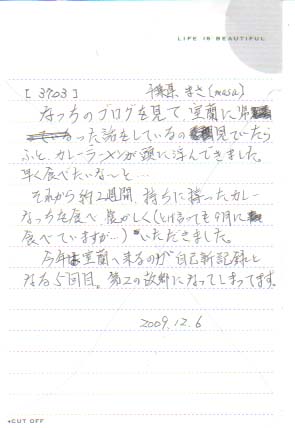 LIFE IS BEAUTIFUL
[3703] 千葉県 まさ(masa)
なっちのブログを見て、室蘭に帰
なった話をしているの見ていたら
ふと、カレーラーメンが頭に浮んできました。
早く食べたいな〜と…
それから約2週間、待ちに待ったカレー
なっちを食べ、楽しく(とは言っても9月に
食べていますが…)いただきました。
今年は室蘭へ来るのが自己新記録と
なる5回目。第2の故郷になってしまってます。
2009.12.6
CUT OFF